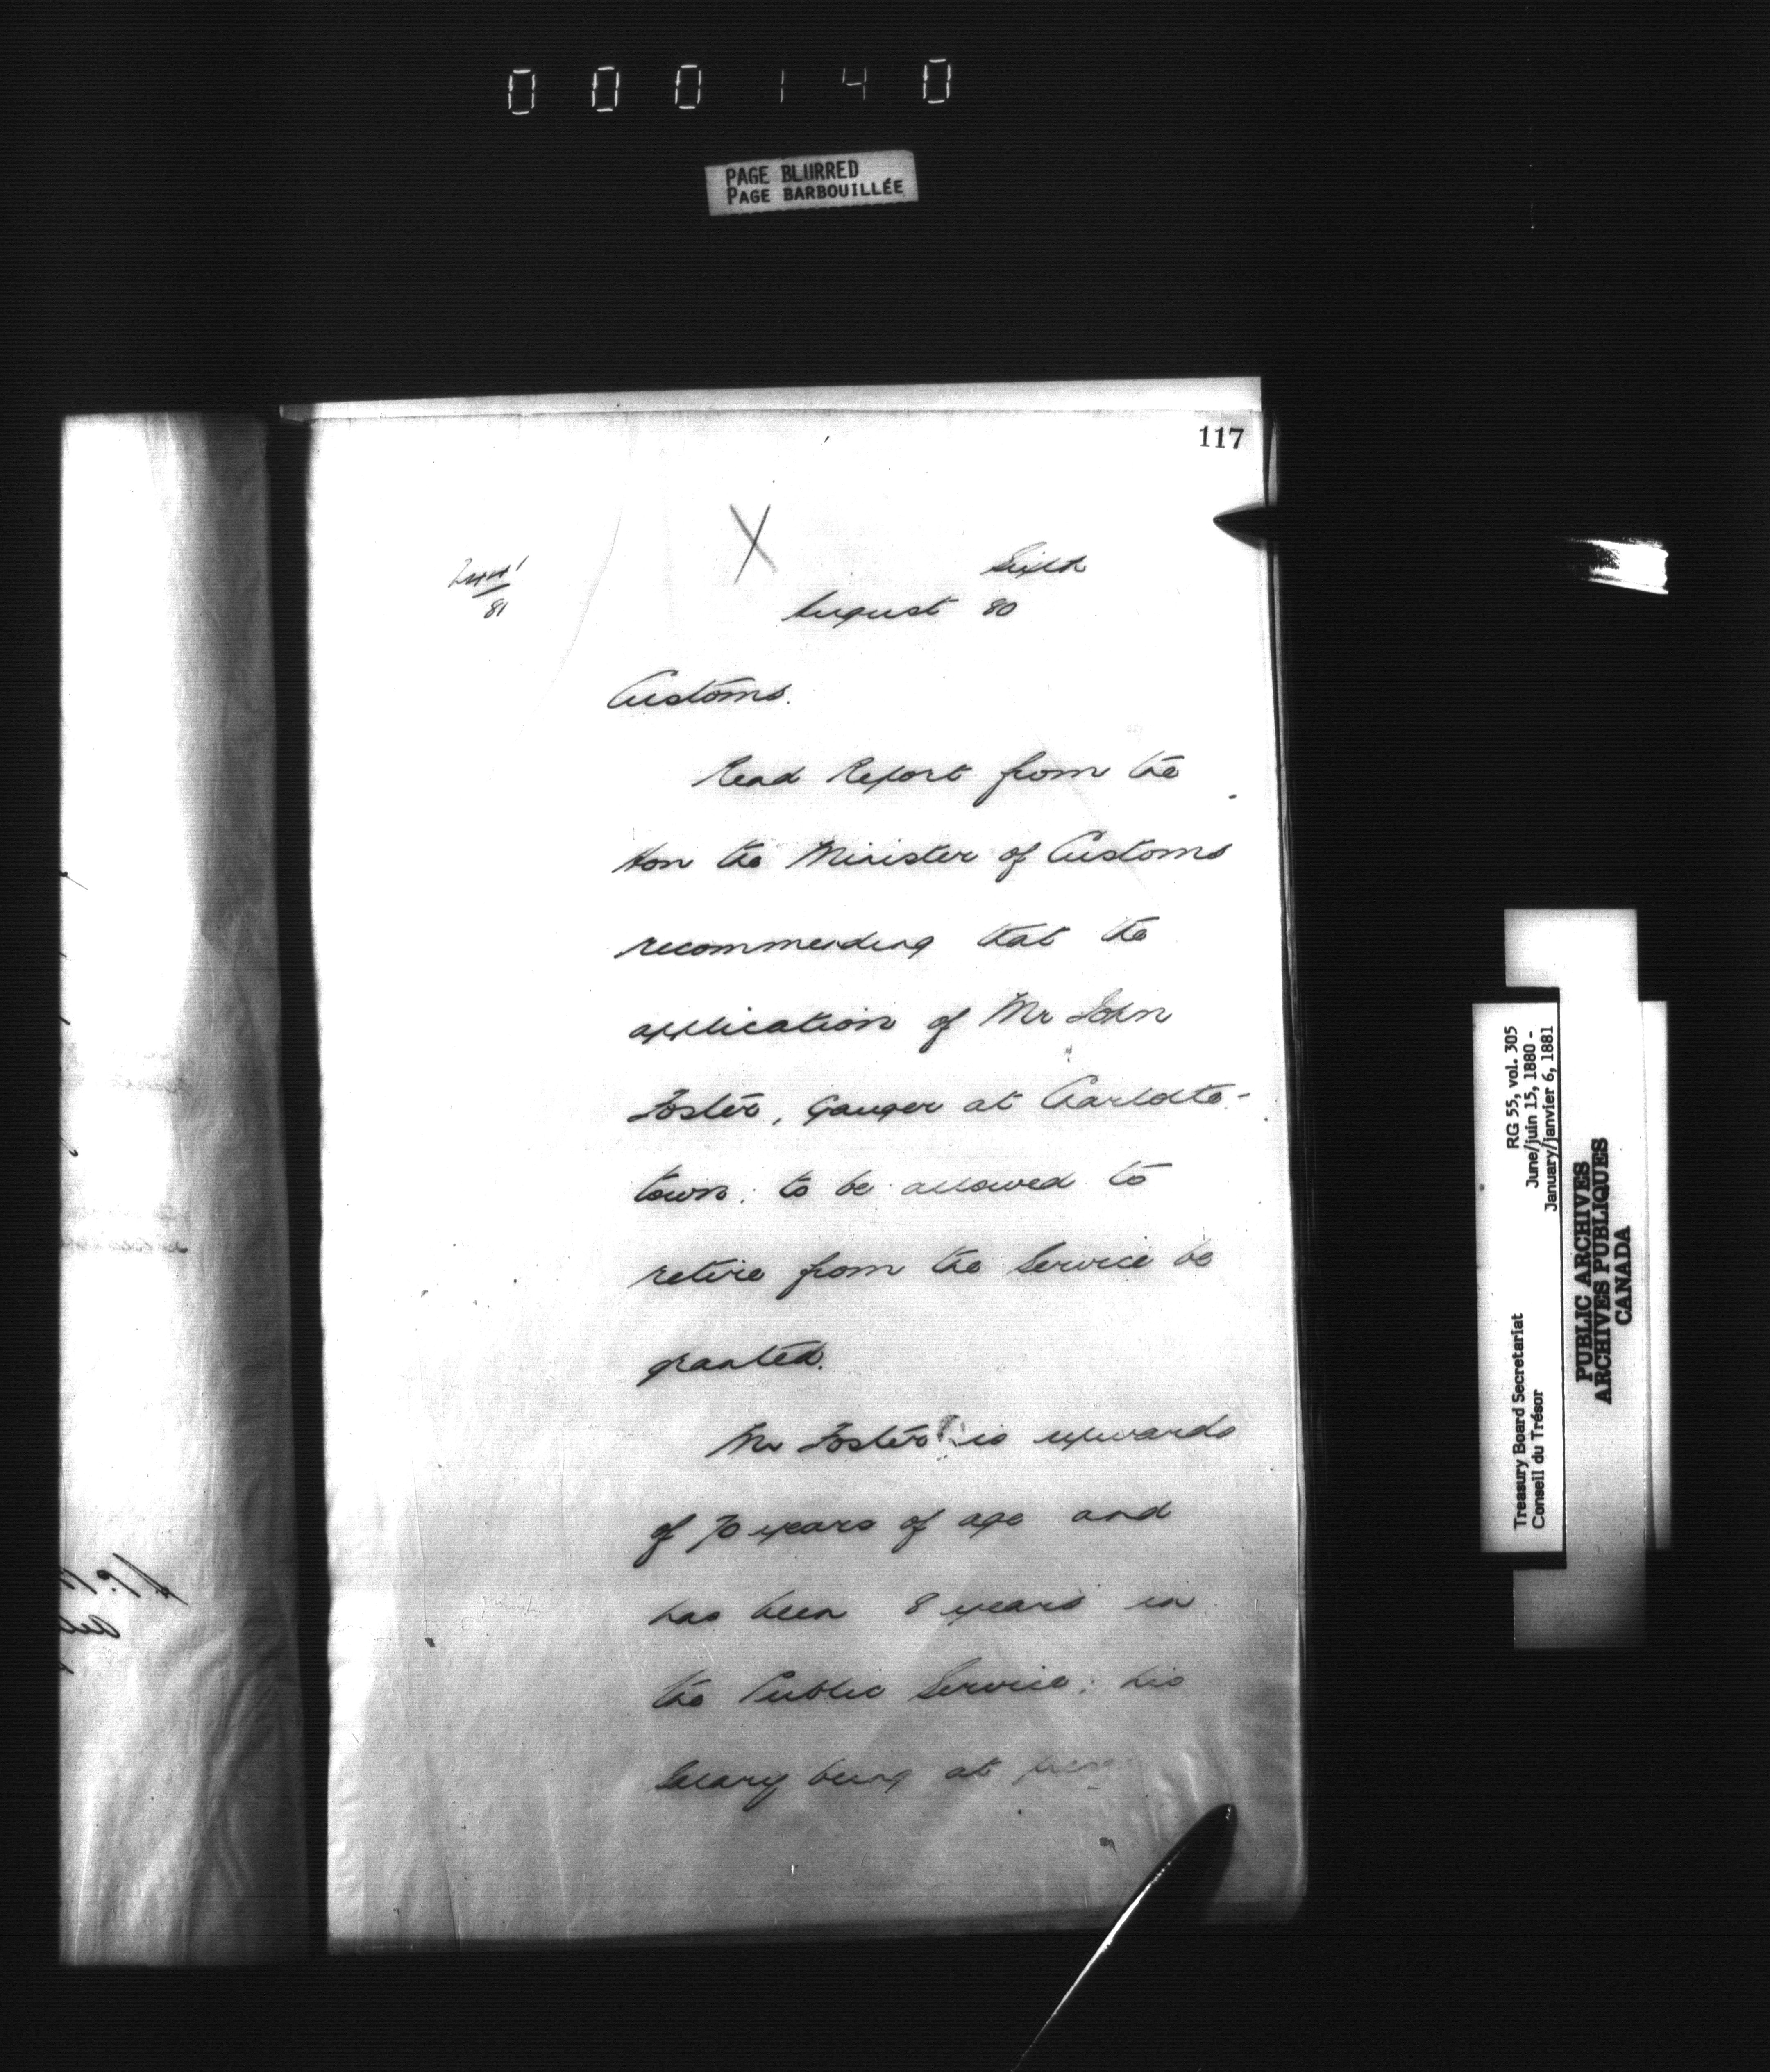 000140
PAGE BLURRED
PAGE BARBOUILLÉE
117
X
81
Sixth
August 80
Customs.
Read Report from the
Hon the Minister of Customs
recommending that the
application of Mr John
Foster, Gauger at Charlotte-
town, to be allowed to
retire from the Service be
granted.
Mr Foster is upwards
of 70 years of age and
has been 8 years in
the Public Service; his
Salary being at
RG 55, vol. 305
June/juin 15, 1880 -
January/janvier 6, 1881
Treasury Board Secretariat
Conseil du Trésor
PUBLIC ARCHIVES
ARCHIVES PUBLIQUES
CANADA